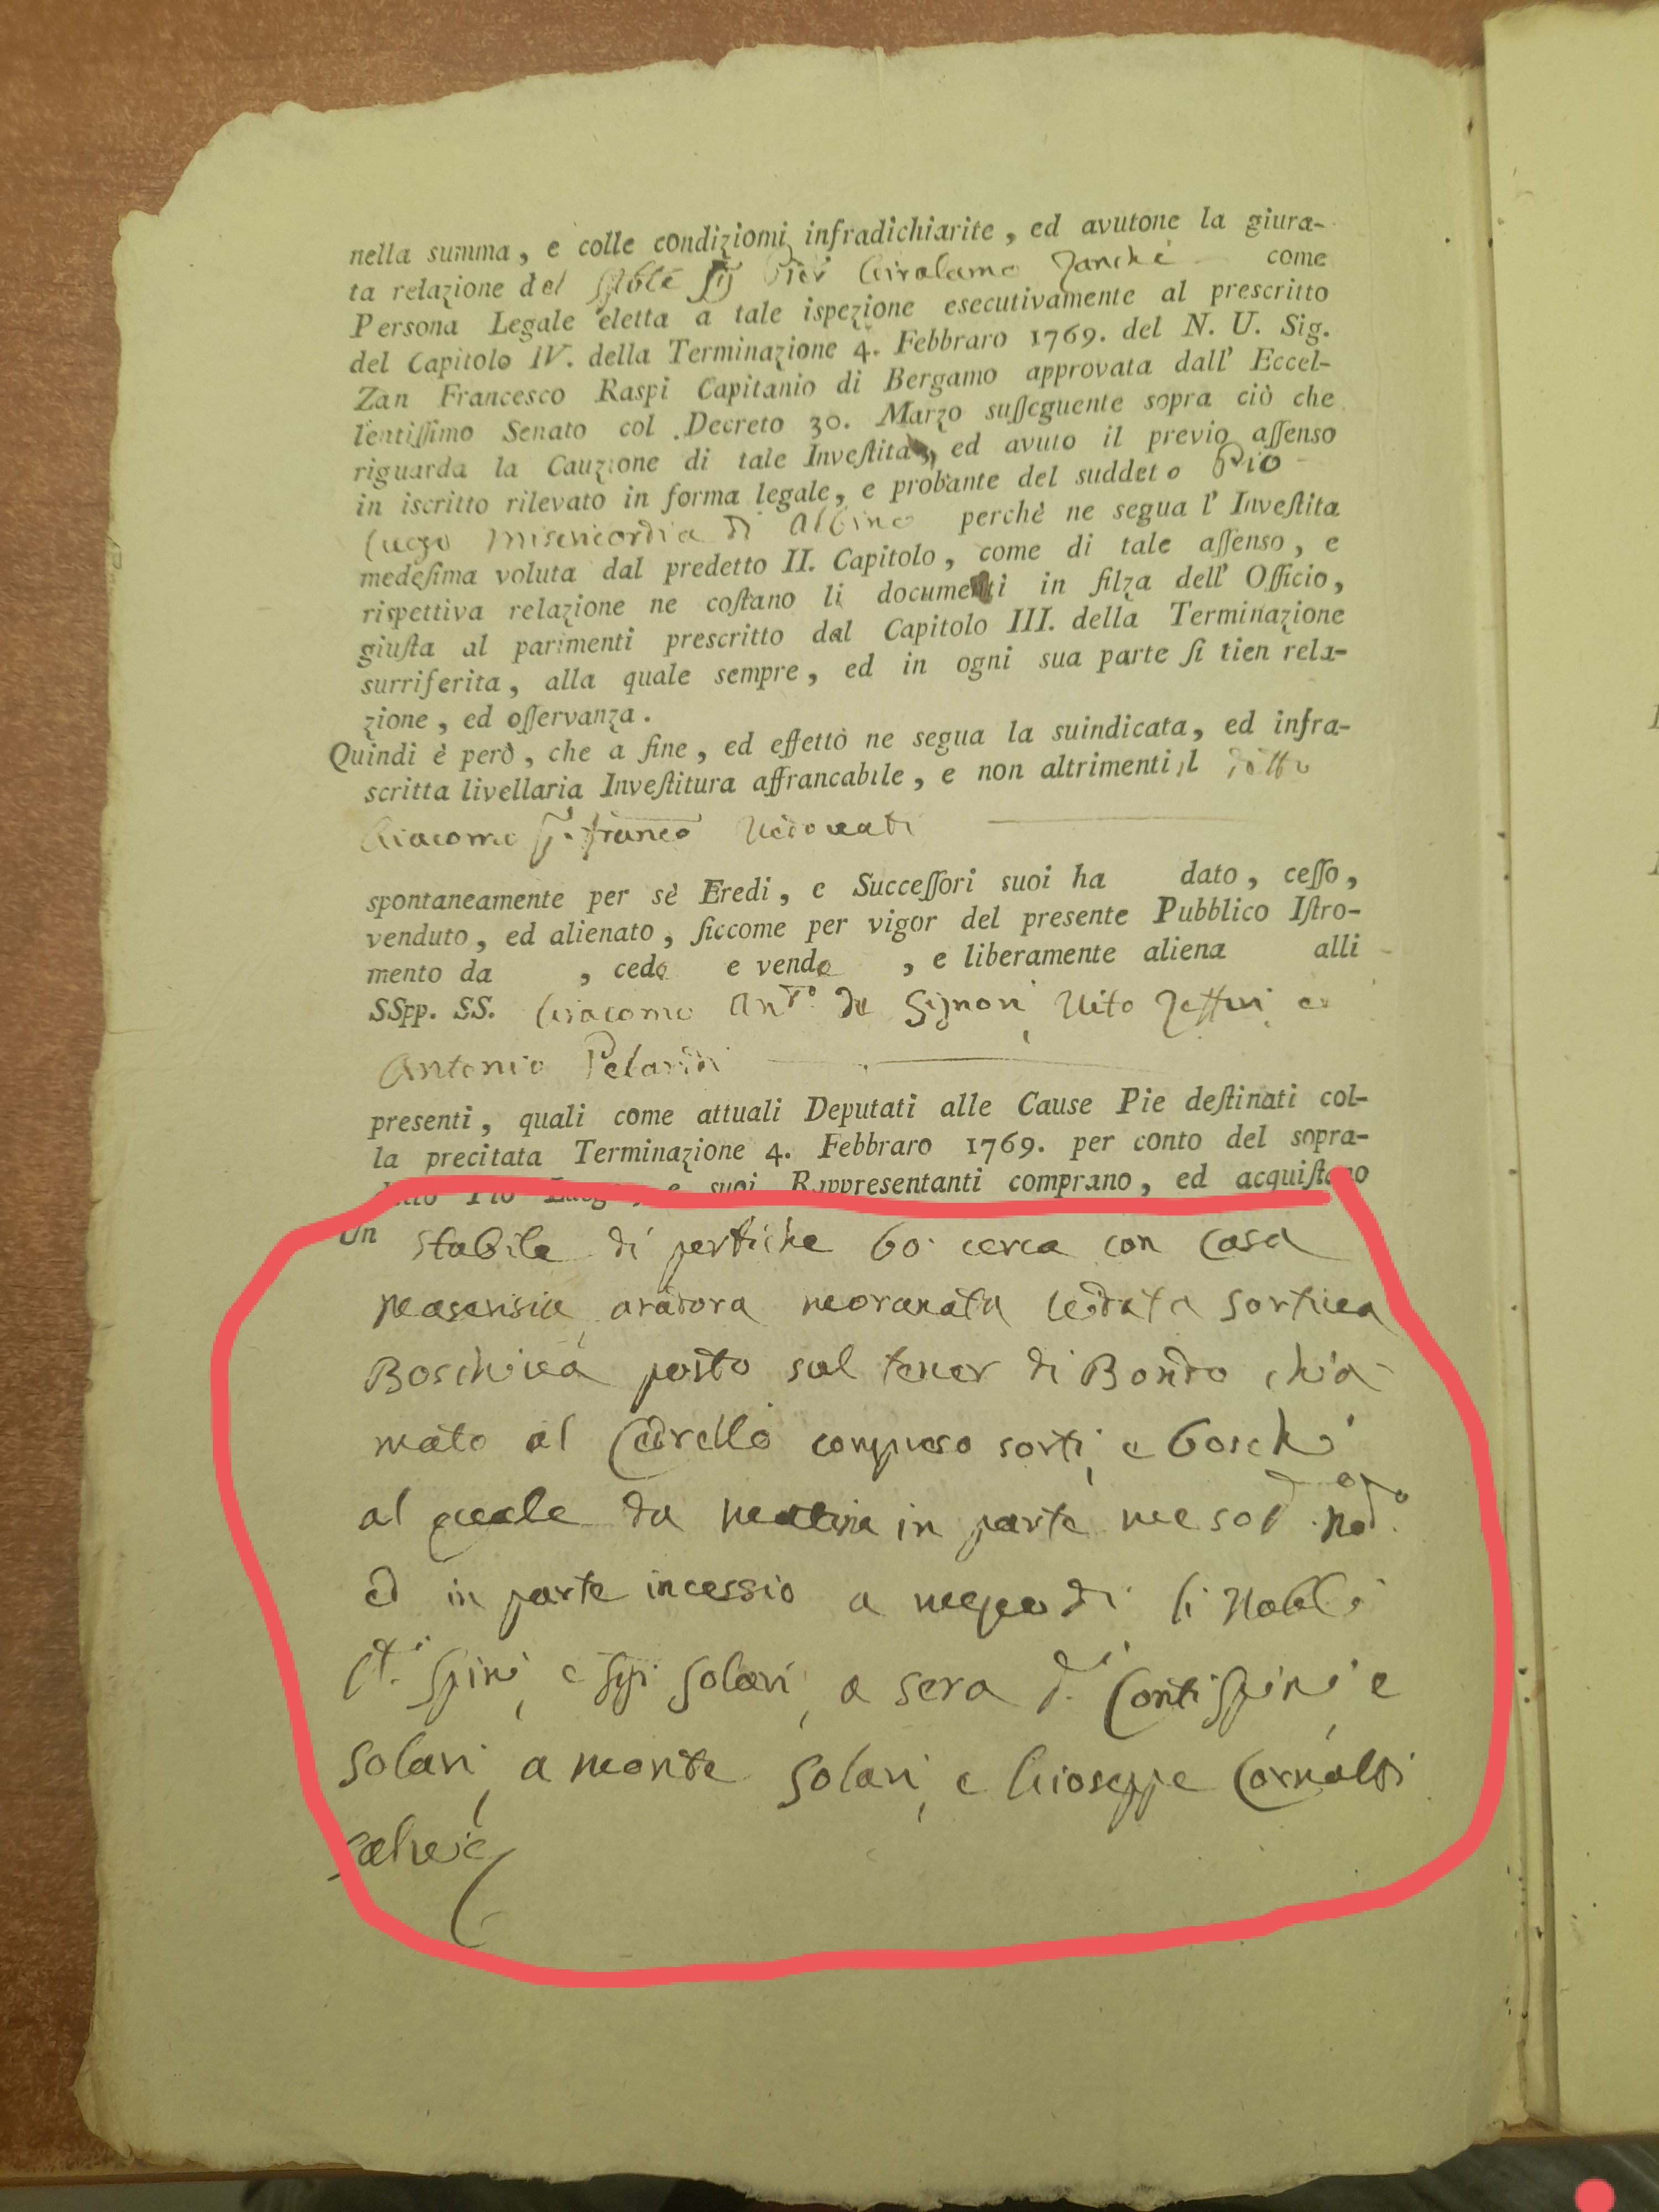 nella summa, e colle condiziomi infradichiarite, ed avutone la giura-
ta relazione del Girolamo Zanchi come
Persona Legale eletta a tale ispezione esecutivamente al prescritto
del Capitolo IV. della Terminazione 4. Febbraro 1769. del N. U. Sig.
Zan Francesco Raspi Capitanio di Bergamo approvata dall' Eccel-
lentiſſimo Senato col Decreto 30. Marzo suſſeguente sopra ciò che
riguarda la Cauzione di tale Inveſtita, ed avuto il previo aſſenso
in iscritto rilevato in forma legale, e probante del suddeto Pio
Luogo Misericordia di Albino perchè ne segua l' Inveſtita
medeſima voluta dal predetto II. Capitolo, come di tale aſſenso, e
rispettiva relazione ne coſtano li documenti in filza dell' Officio,
giuſta al parimenti prescritto dal Capitolo III. della Terminazione
surriferita, alla quale sempre, ed in ogni sua parte ſi tien rela-
zione, ed oſſervanza.
Quindi è però, che a fine, ed effettò ne segua la suindicata, ed infra-
scritta livellaria Inveſtitura affrancabile, e non altrimenti il detto
Giacomo
spontaneamente per sè Eredi, e Succeſſori suoi ha dato, ceſſo,
venduto, ed alienato, ſiccome per vigor del presente Pubblico Iſtro-
mento da , cede e vende , e liberamente aliena alli
SSpp. SS. Giacomo Ant.o de Signori, Vito
Antonio
presenti, quali come attuali Deputati alle Cause Pie deſtinati col-
la precitata Terminazione 4. Febbraro 1769. per conto del sopra-
detto Pio Luogo, e suoi Rappresentanti comprano, ed acquiſtano
Un stabile di pertiche 60 cerca con casa
masensia, aradora moranata sortiva
Boschiva posto sul tener di Bondo chia-
mato al compreso sorti, e boschi
al quale da matina in parte
ed in parte incessio a mezodi li Nobb.i
Spini, e Solari, a sera Conti Spini, e
Solari, a monte Solari, e Gioseppe Carnazzi
salvis